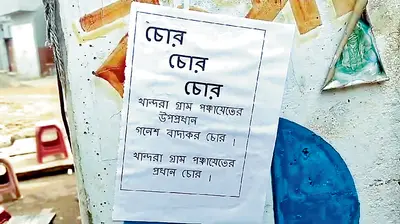 চোর
চোর
চোর
খান্দরা গ্রাম পঞ্চায়েতের
উপপ্রধান
গনেশ বাদ্যকর চোর ।
খান্দরা গ্রাম পঞ্চায়েতের
প্রধান চোর ।